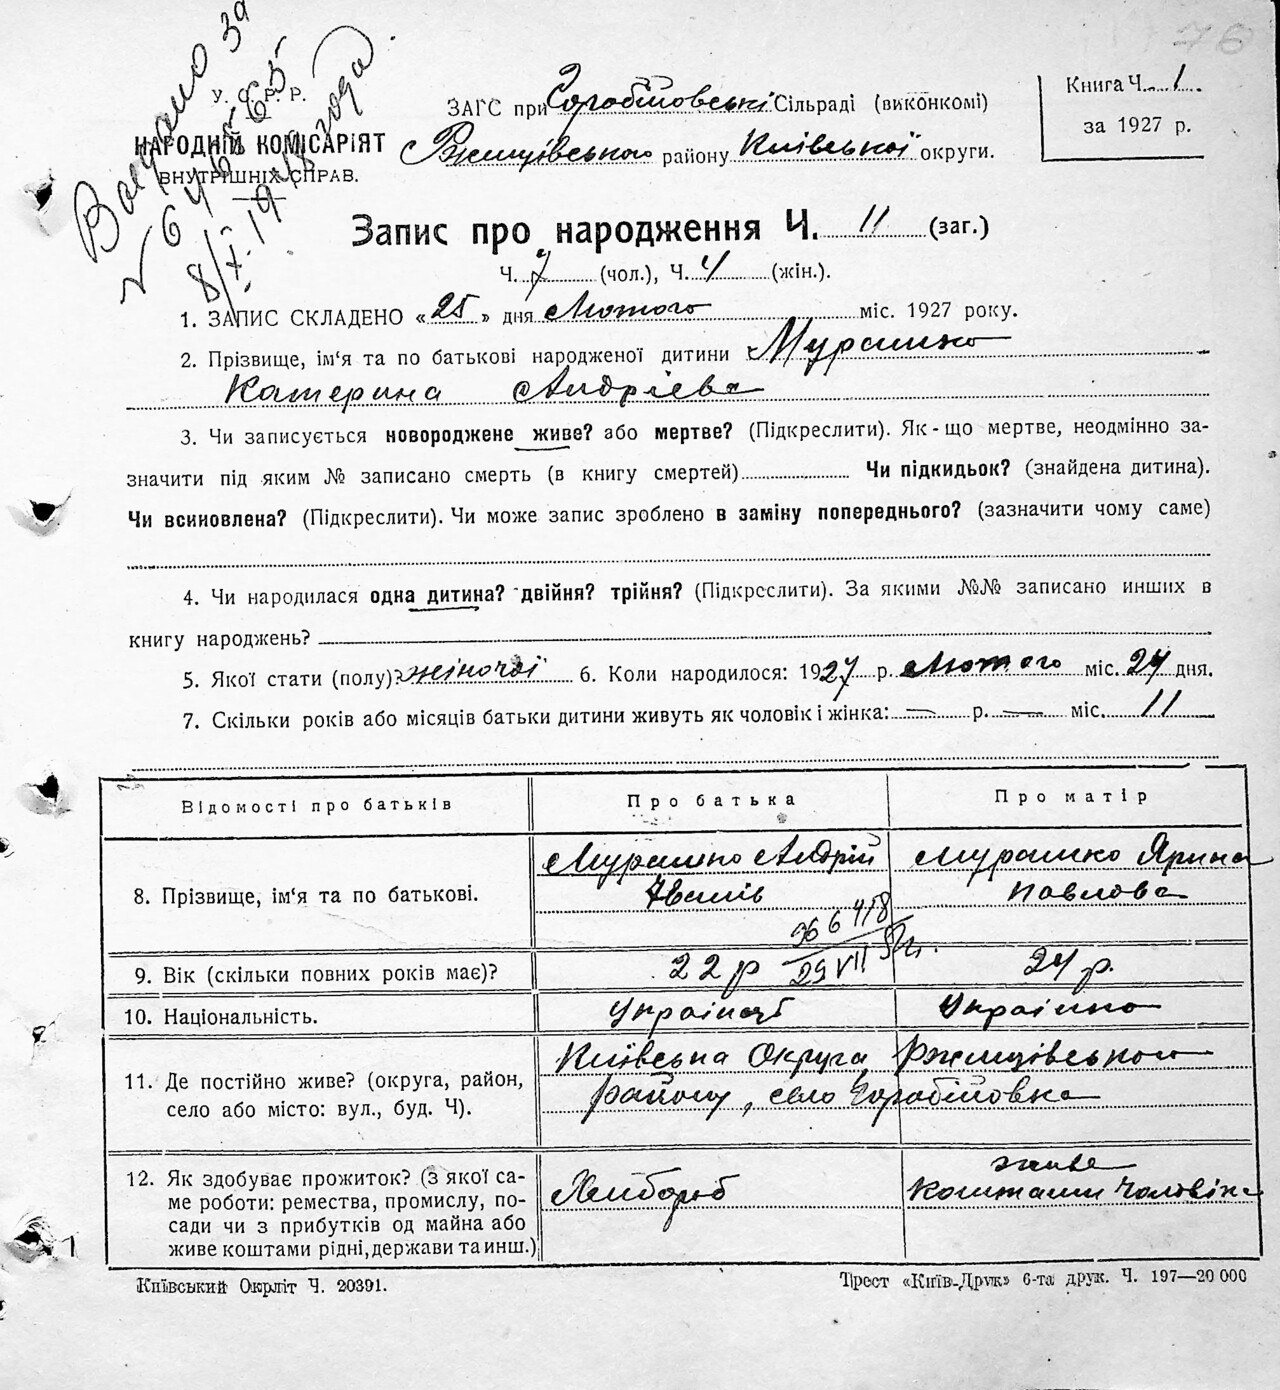 76
У. С. Р. Р.
НАРОДНІЙ КОМІСАРІЯТ
ВНУТРІШНІХ СПРАВ.
8/X-1948 года
ЗАГС при Горобіївській Сільраді (виконкомі)
Ржищівського району Київської округи.
Книга Ч. 1.
за 1927 р.
Запис про народження Ч. 11 (заг.)
Ч. 7 (чол.), Ч. 4 (жін.).
1. ЗАПИС СКЛАДЕНО «25» дня Лютого міс. 1927 року.
2. Прізвище, ім'я та по батькові народженої дитини Мурашко
Катерина Андрієва
3. Чи записується новороджене живе? або мертве? (Підкреслити). Як-що мертве, неодмінно за-
значити під яким № записано смерть (в книгу смертей) Чи підкидьок? (знайдена дитина).
Чи всиновлена? (Підкреслити). Чи може запис зроблено в заміну попереднього? (зазначити чому саме)
4. Чи народилася одна дитина? двійня? трійня? (Підкреслити). За якими №№ записано инших в
книгу народжень?
5. Якої стати (полу)? жіночої 6. Коли народилося: 1927 р. Лютого міс. 24 дня.
7. Скільки років або місяців батьки дитини живуть як чоловік і жінка: — р. — міс. 11
Відомості про батьків Про батька Про матір
8. Прізвище, ім'я та по батькові. Мурашко Андрій Мурашко Ярина
Іванів Павлова
9. Вік (скільки повних років має)? 22 р 24 р.
10. Національність. Українець Українка
11. Де постійно живе? (округа, район, Київська Округа, Ржищівського
село або місто: вул., буд. Ч). району, село Горобіївка
12. Як здобуває прожиток? (з якої са- живе
ме роботи: ремества, промислу, по- Хлібороб коштами чоловіка
сади чи з прибутків од майна або
живе коштами рідні, держави та инш.)
Київський Окрліт Ч. 20391. Трест «Київ-Друк» 6-та друк. Ч. 197—20 000